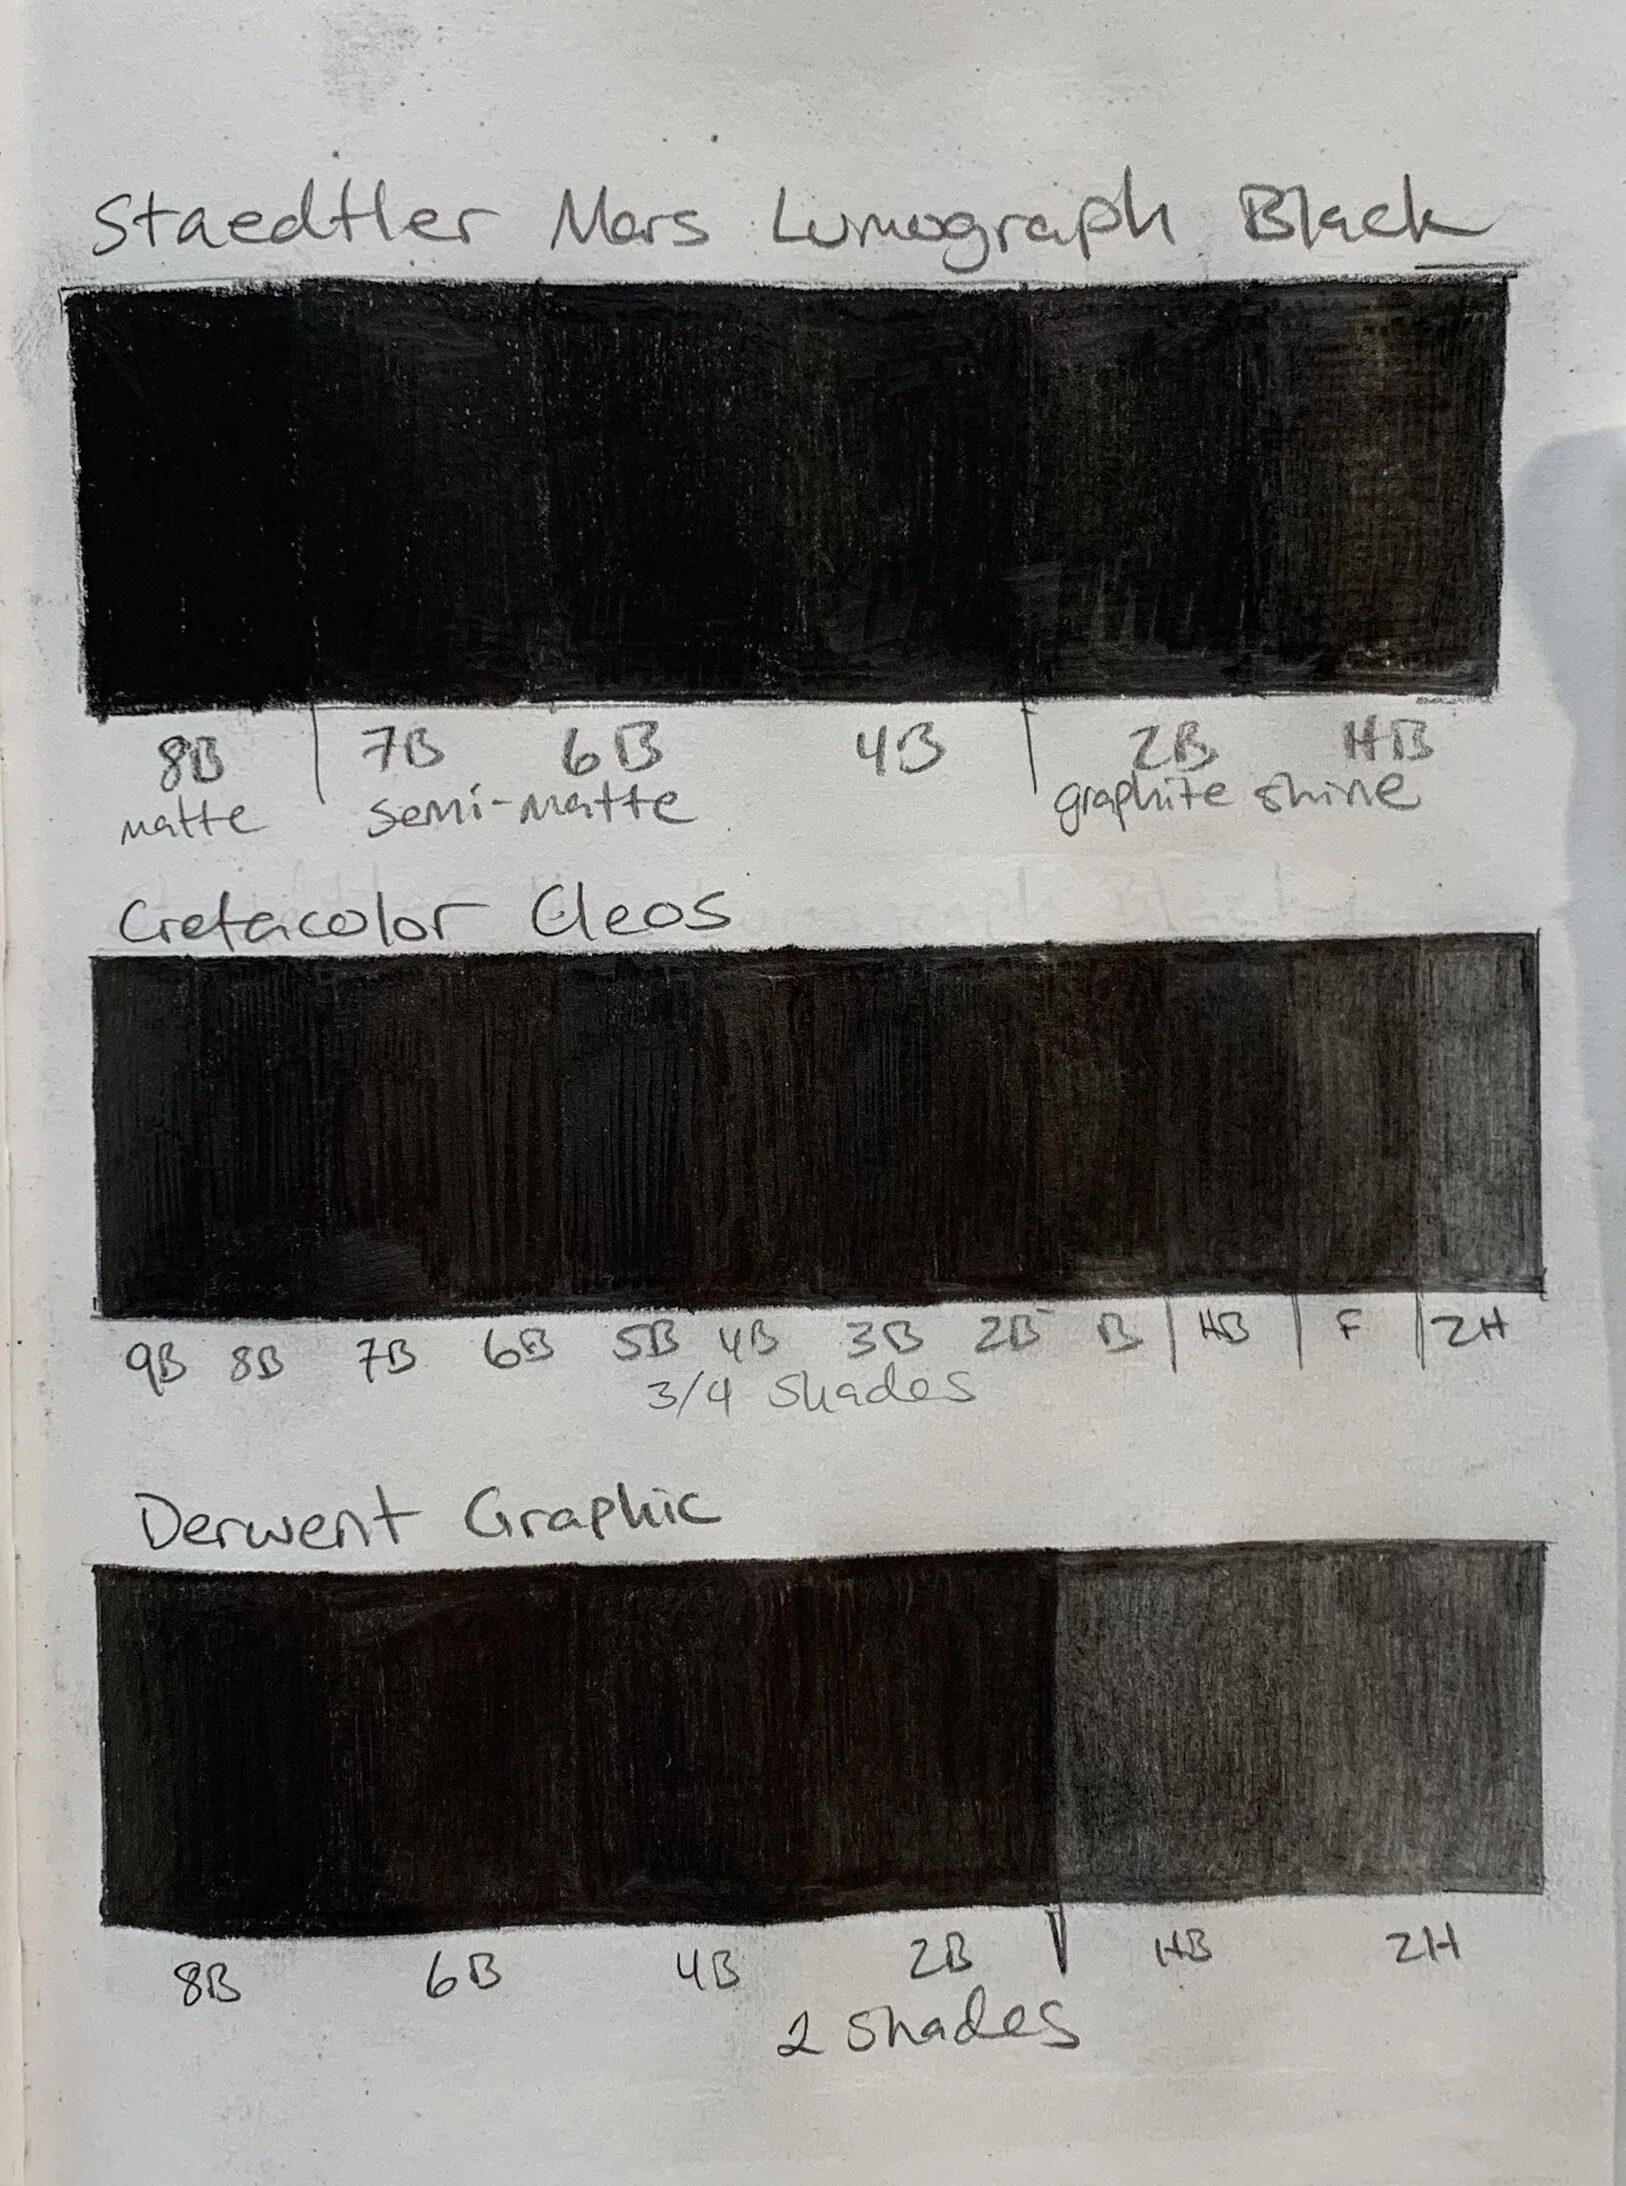 Staedtler Mars Lumograph Black
8B 7B 6B 4B 2B HB
matte semi-matte graphite shine
Cretacolor Cleos
9B 8B 7B 6B 5B 4B 3B 2B B HB F 2H
3/4 shades
Derwent Graphic
8B 6B 4B 2B HB 2H
2 shades